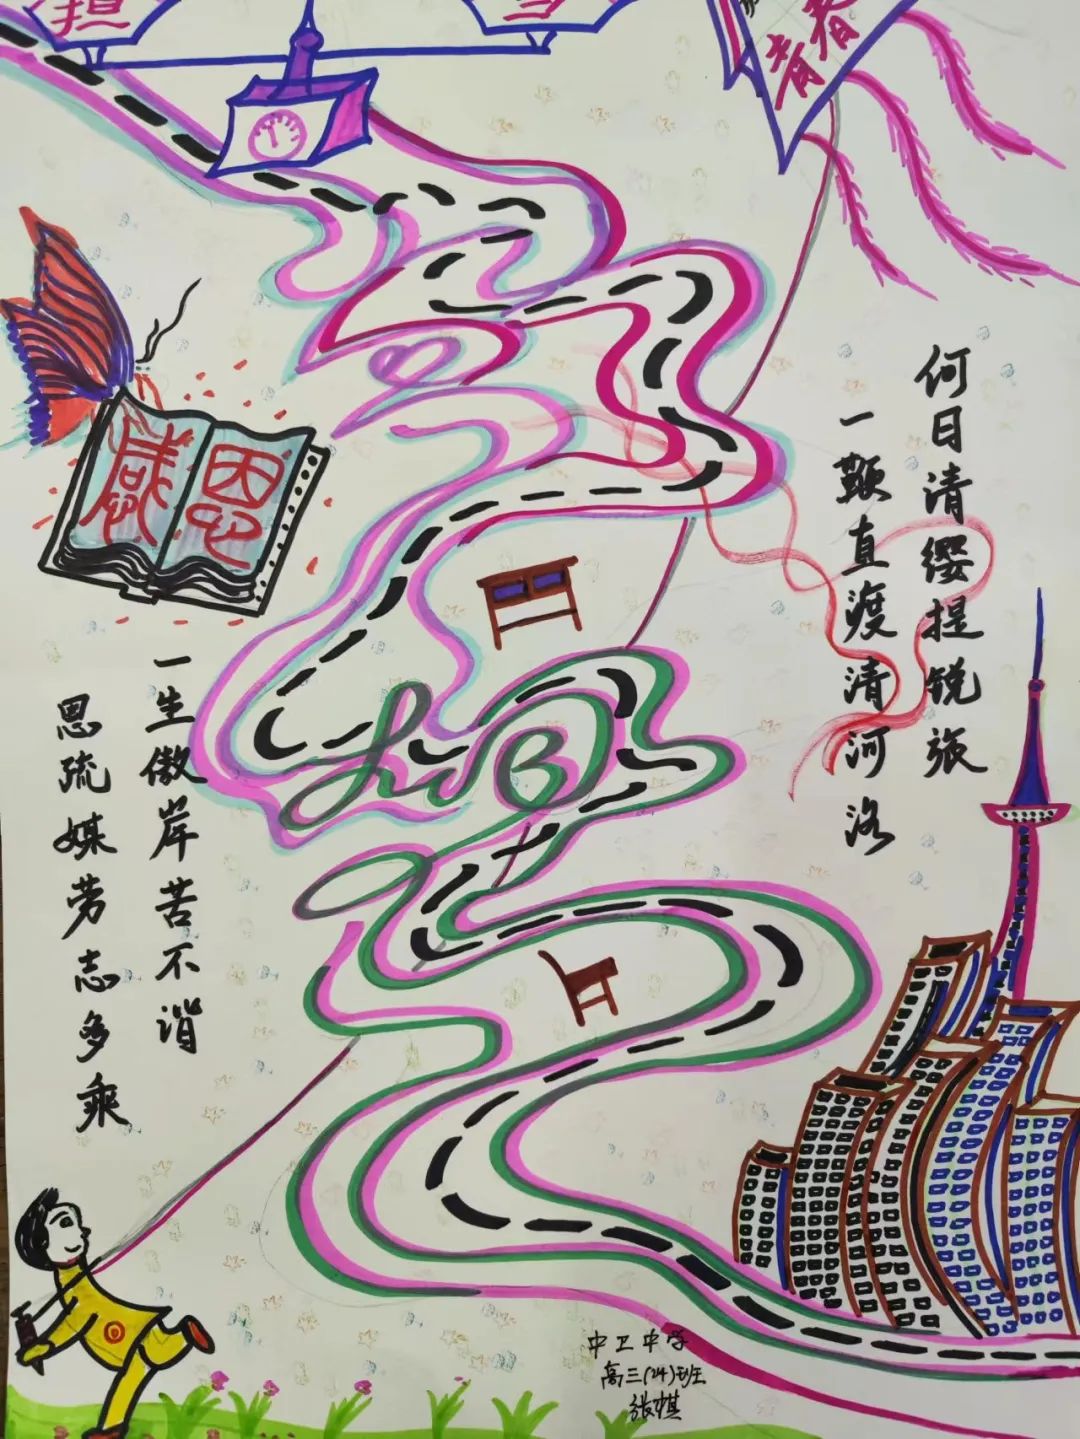 担
青春
感恩
何日清缨提锐旅
一直渡清河洛
一生傲岸苦不谐
恩疏媒劳志多乘
中卫中学
高三(24)班
张琪